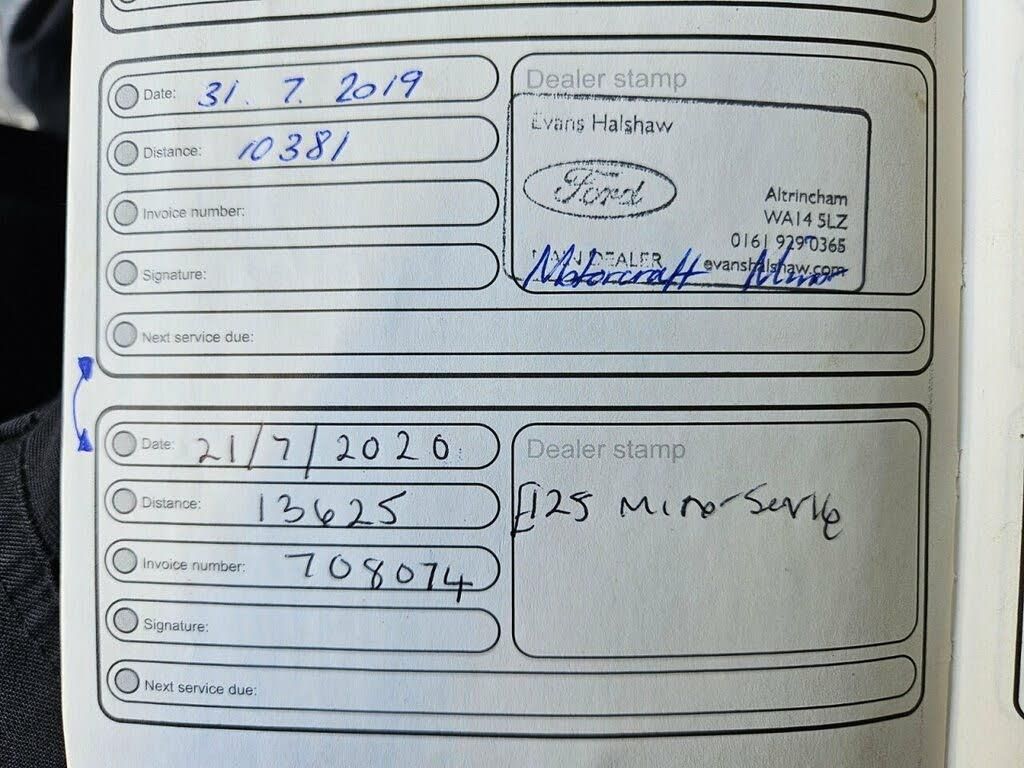 Date: 31.7.2019
Distance: 10381
Invoice number:
Signature:
Next service due:
Dealer stamp
Evans Halshaw
Ford
Altrincham
WA14 5LZ
0161 929 0365
MAIN DEALER evanshalshaw.com
Motorcraft Minor
Date: 21/7/2020
Distance: 13625
Invoice number: 708074
Signature:
Next service due:
Dealer stamp
£125 Minor Service